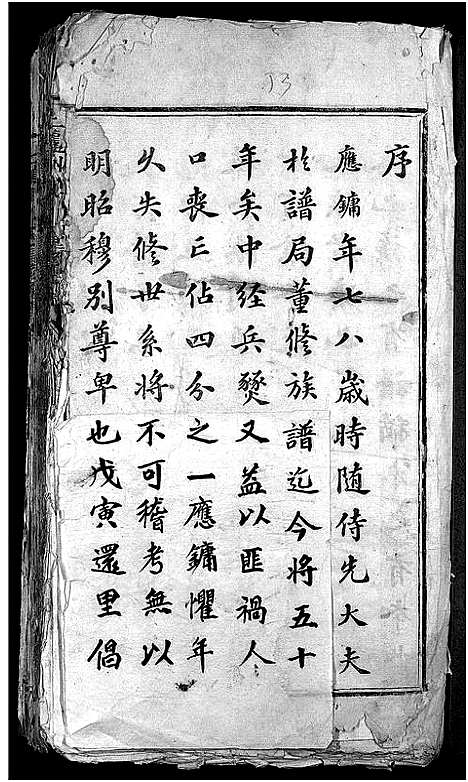 序
應鏞年七八歲時随侍先大夫
於譜局董修族譜迄今將五十
年矣中经兵燹又益以匪禍人
口喪亡佔四分之一應鏞懼年
久失修世系將不可稽考無以
明昭穆别尊卑也戊寅還里倡
13